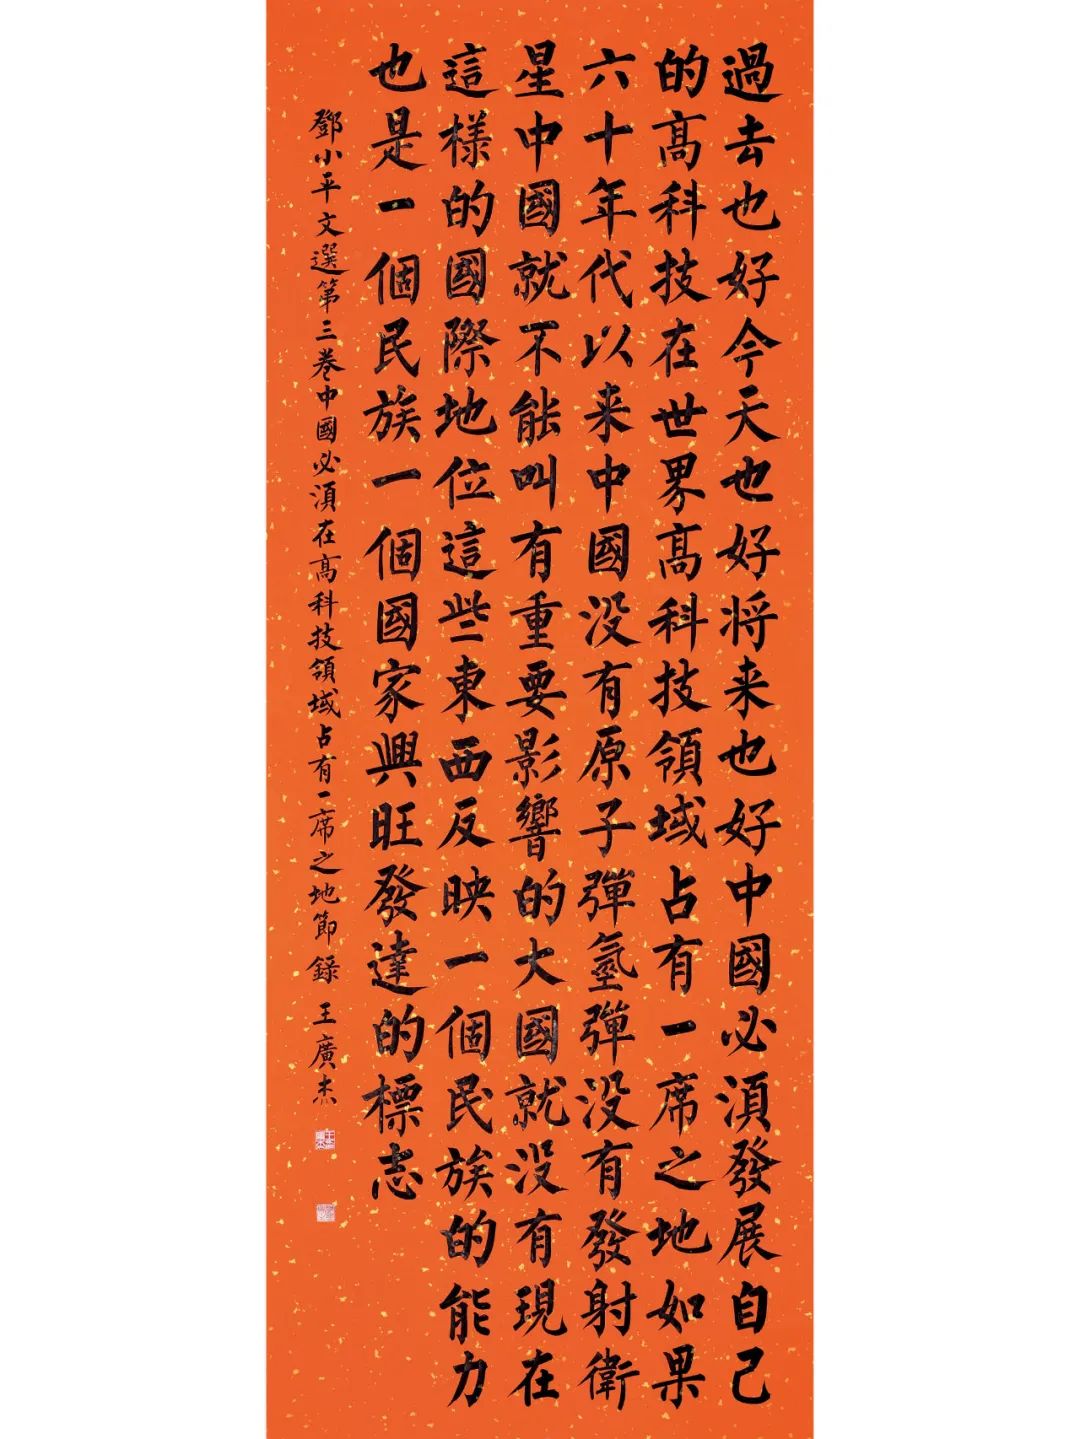 過去也好今天也好将来也好中國必湏發展自己
的髙科技在世界髙科技領域占有一席之地如果
六十年代以来中國没有原子彈氫彈没有發射衛
星中國就不能叫有重要影響的大國就没有現在
這樣的國際地位這些東西反映一個民族的能力
也是一個民族一個國家興旺發達的標志
鄧小平文選第三卷中國必湏在髙科技領域占有一席之地節録王廣杰